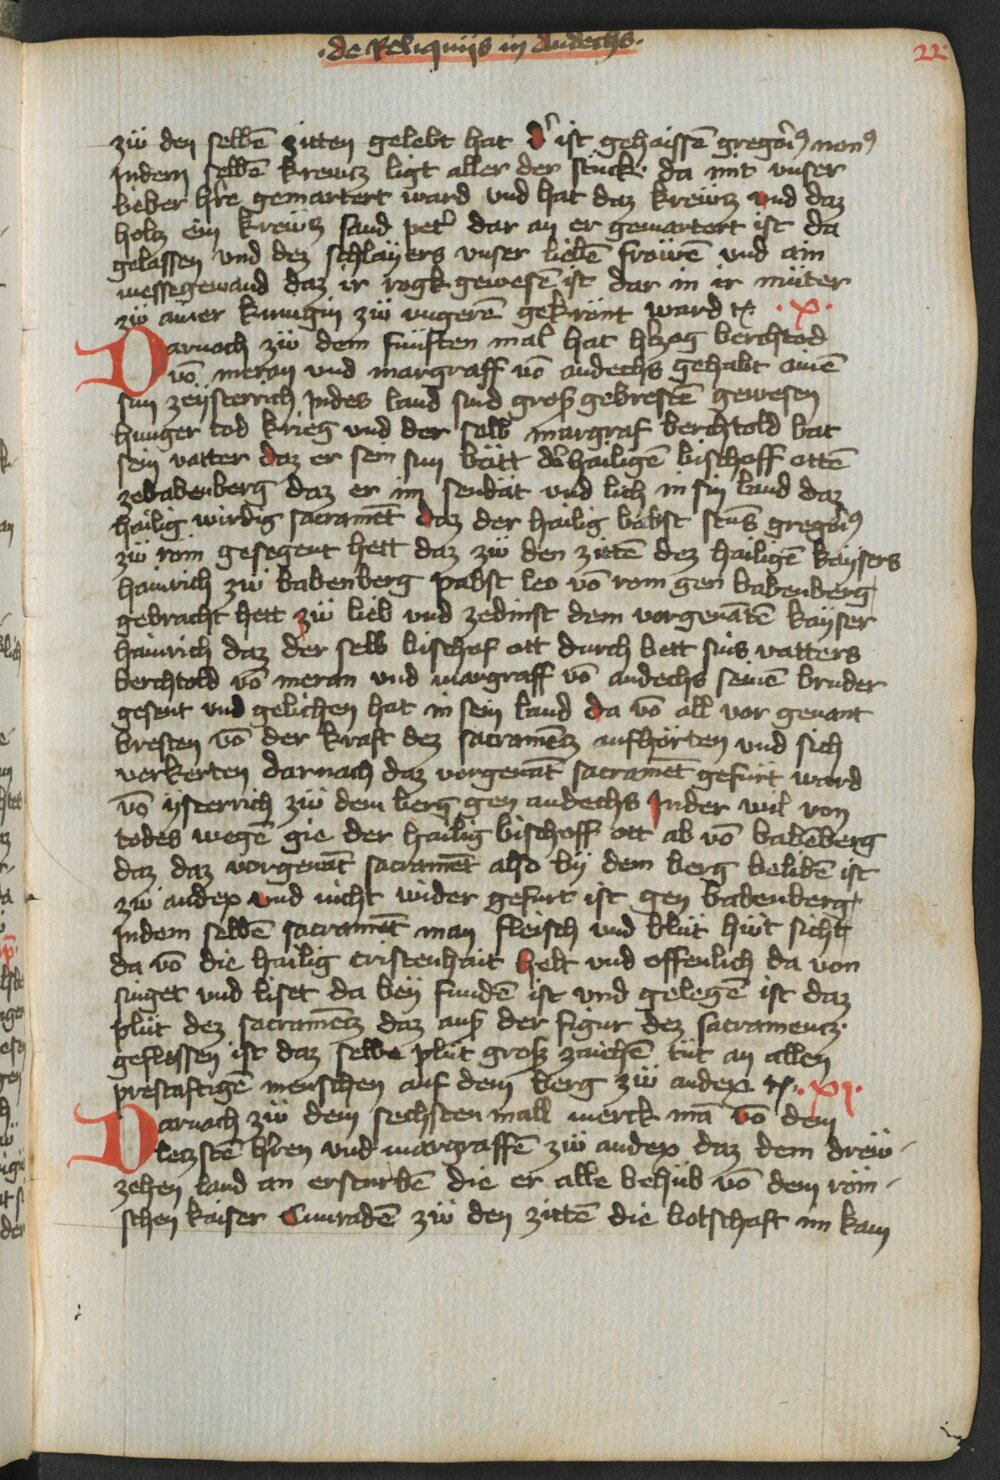 ·de Reliquijs in Andechs·
22
zů den selbē zitten gelebt hat dͬ ist gehaissē gregoriꝰ nonꝰ
Indem selbē krewcz ligt aller der stuck· da mit vnser
lieber hr̄e gemartert ward vnd hat daz krewcz vnd daz
holcz ein krewcz sand petͬ dar an er gemartert ist da
gelassen vnd dez schlayers vnser liebē frowē vnd ain
messegewand daz ir rogk gewesē ist dar in ir můter
zů ainer kunigin zů vngerē gekrönt ward ꝛc ·x·
Darnach zů dem fünften mal hat hrczog berchtod
vō meran vnd margraff vō andechs gehabt ainē
sun zeysterrich Indes land sind groß gebrestē gewesen
hunger tod krieg vnd der selb margraf berchtold bat
sein vatter daz er sein sun bätt dē hailigē bischoff ottē
zebabenberg daz er im sendät vnd lich in sin land daz
hailig wirdig sacramēt daz der hailig babst scūs gregoriꝰ
zů rom gesegent hett daz zů den zittē dez hailigē kaysers
hainrich zů babenberg pabst leo vō rom gen babenberg
gebracht hett zů lieb vnd zedinst dem vorgenātē kayser
hainrich daz der selb bischof ott durch bett sins vatters
berchtold vō meran vnd margraff vō andechs seinē bruder
gesent vnd gelichen hat in sein land da vō all vor genant
bresten vō der kraft dez sacramēcz aufhörten vnd sich
verkerten darnach daz vorgenāt sacramēt gefürt ward
vō ysterrich zů dem berg gen andechs Inder wil von
todes wegē gie der hailig bischoff ott ab vō babēberg
daz daz vorgenāt sacramēt also by dem berg belibē ist
zů andex vnd nicht wider gefurt ist gen babenberg
Indem selbē sacramēt man fleisch vnd blůt hüt sicht
da vō die hailig cristenhait helt vnd offenlich da von
singet vnd liset da bey fundē ist vnd gelegē ist daz
plůt dez sacramēcz daz auß der figur dez sacramencz·
geflossen ist daz selbe plůt groß zaichē tůt an allen
prestaftigē menschen auf dem berg zů andex ꝛc ·xj·
Darnach zů dem sechsten mall merck mā vō dem
leczstē hr̄en vnd margraffē zů andex daz dem drew-
zehen land an ersturbē die er alle behůb vō dem röm-
schen kaiser Cunradē zů den zittē die botschaft im kam